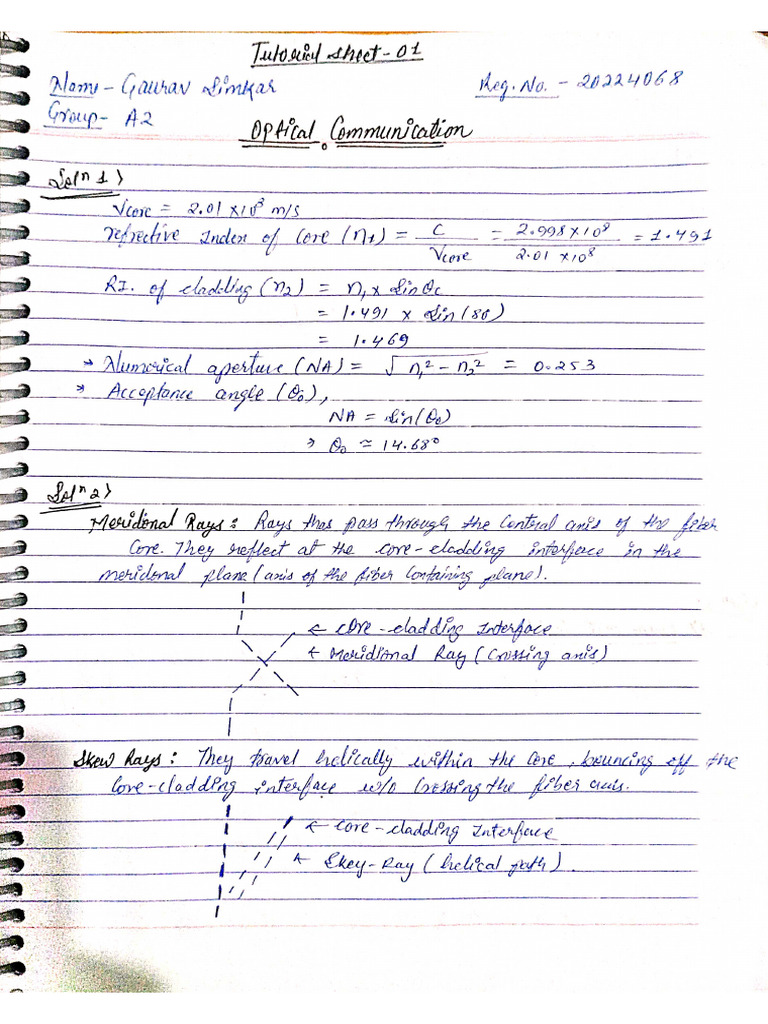 Tutorial Sheet-01
Name - Gaurav Simkar
Reg. No. - 20224068
Group - A2
Optical Communication
Solⁿ 1)
Vcore = 2.01 × 10⁸ m/s
refrective Index of Core (n₁) = C / Vcore = 2.998×10⁸ / 2.01 ×10⁸ = 1.491
RI. of cladding (n₂) = n₁ × Sinθc
= 1.491 × Sin(80)
= 1.469
→ Numorical aperture (NA) = √(n₁² - n₂²) = 0.253
→ Acceptance angle (θ₀),
NA = Sin(θ₀)
→ θ₀ ≃ 14.68°
Solⁿ 2)
Meridonal Rays: Rays thas pass through the Central axis of the fiber
Core. They reflect at the core-cladding interface in the
meridonal plane (axis of the fiber Containing plane).
← core-cladding Interface
← Meridional Ray (Crossing axis)
Skew Rays: They travel helically within the Core, bouncing off the
Core-cladding interface w/o Crossing the fiber axis.
← core-cladding Interface
← Skey-Ray (helical path).